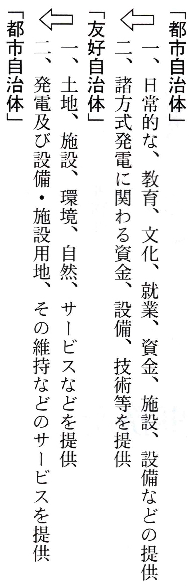 「都市自治体」
一、日常的な、教育、文化、就業、資金、施設、設備などの提供
二、諸方式発電に関わる資金、設備、技術等を提供
「友好自治体」
一、土地、施設、環境、自然、サービスなどを提供
二、発電及び設備・施設用地、その維持などのサービスを提供
「都市自治体」